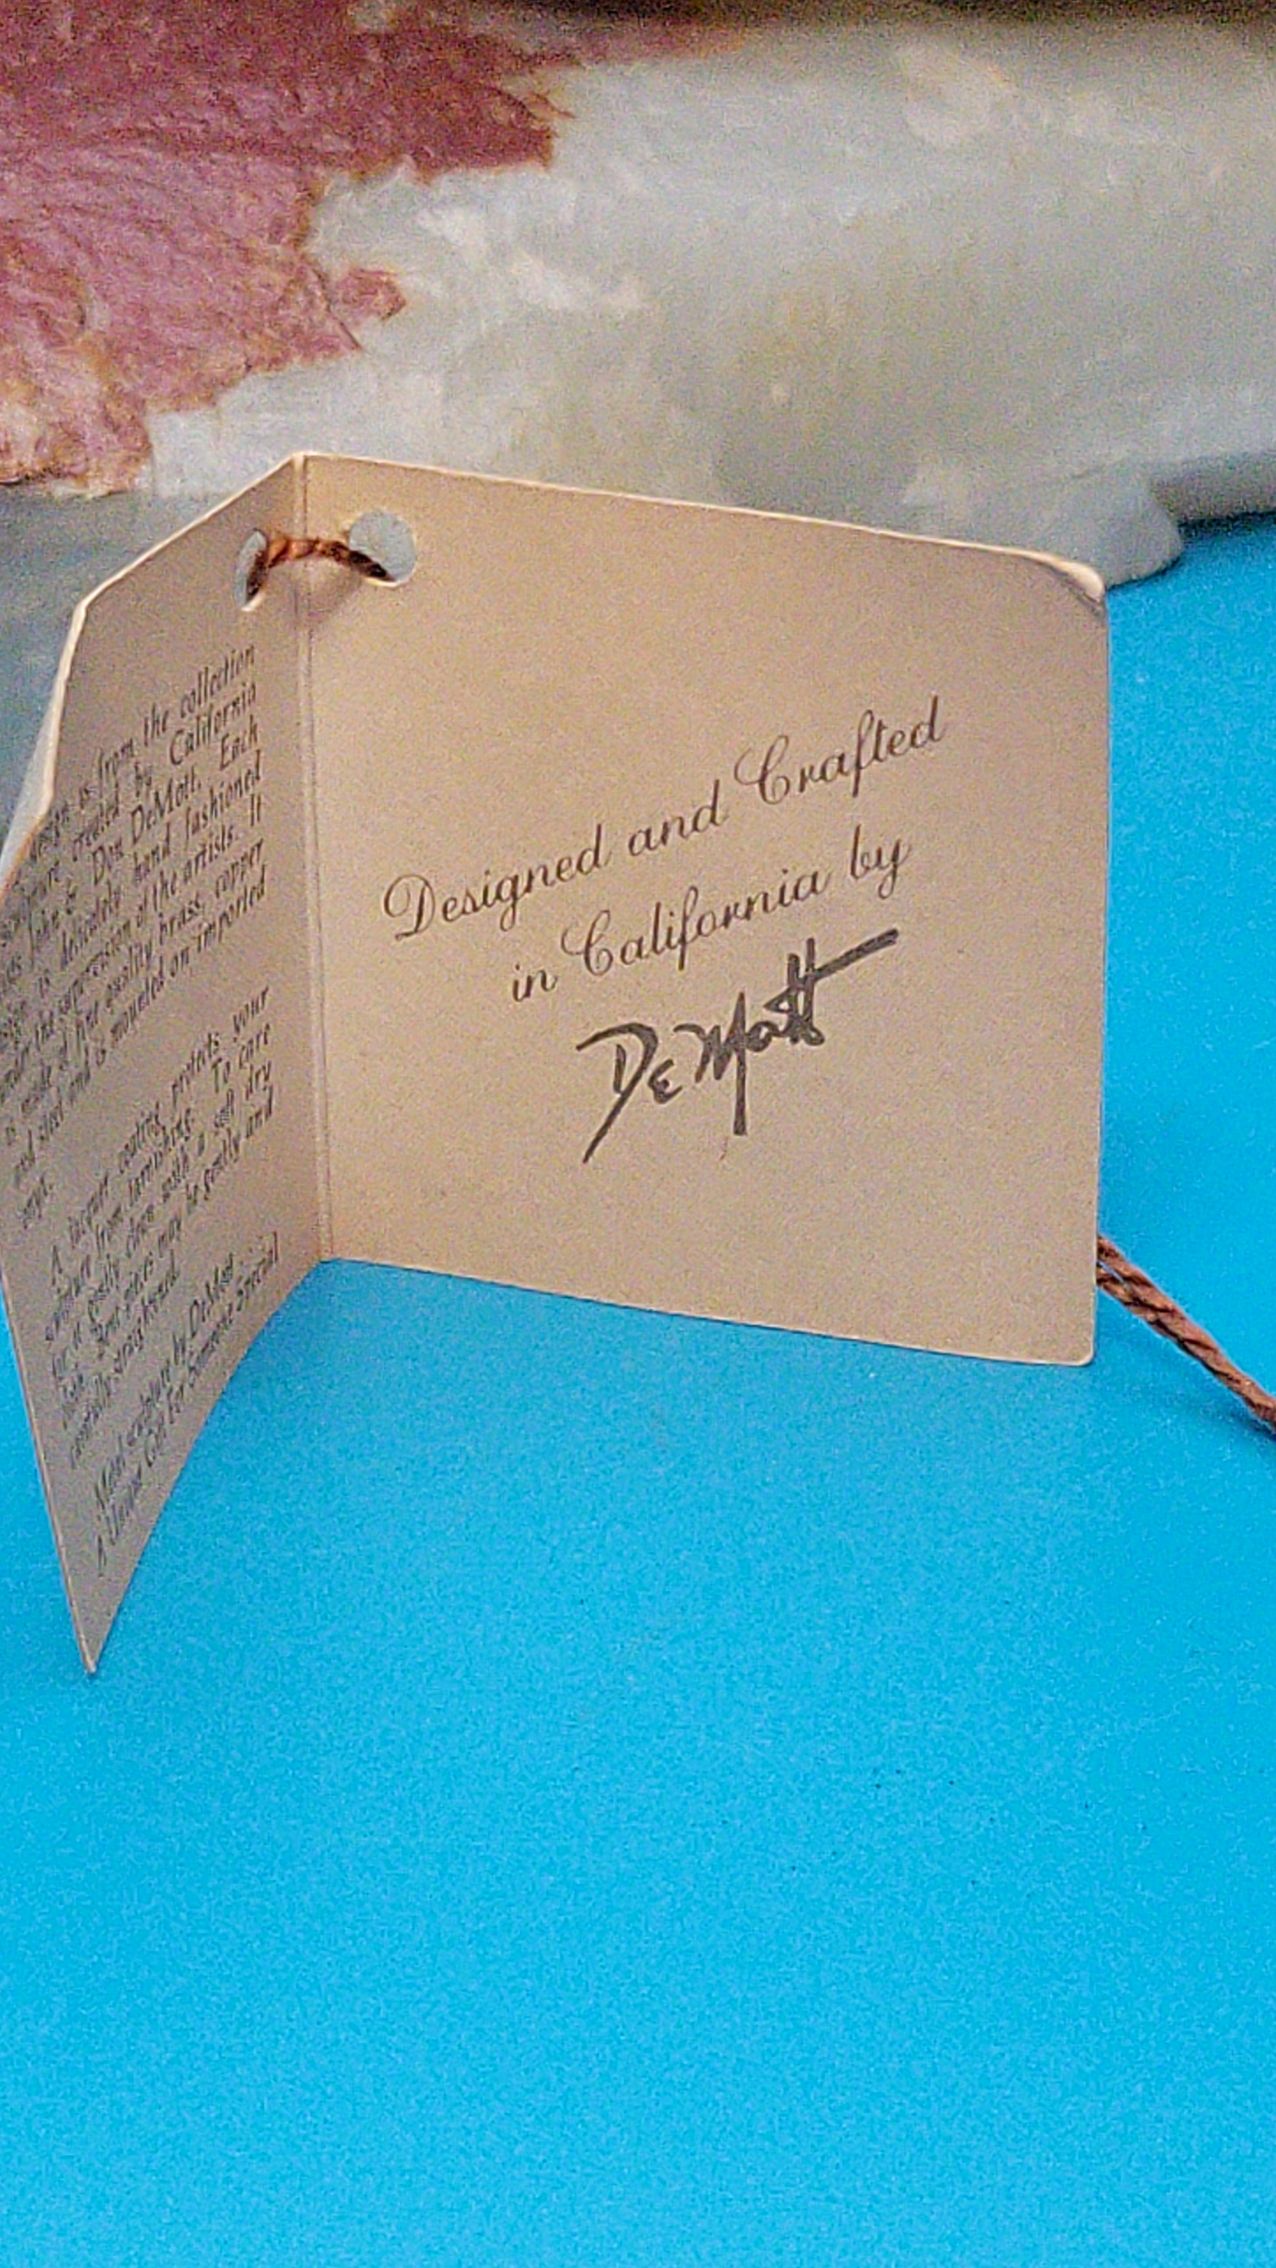 design is from the collection
created by California
John & Don DeMott. Each
is delicately hand fashioned
under the supervision of the artists. It
is made of fine quality brass, copper
and steel and is mounted on imported
onyx.
A lacquer coating protects your
sculpture from tarnishing. To care
for it gently clean with a soft dry
cloth. Bent pieces may be gently and
carefully straightened.
Metal sculpture by DeMott
A Unique Gift For Someone Special
Designed and Crafted
in California by
DeMott